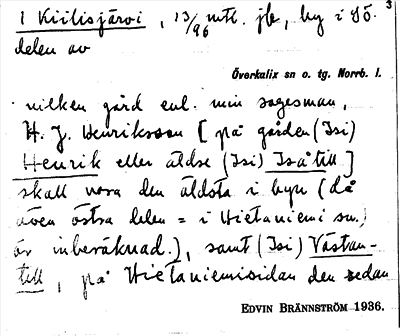 3
1 Kiilisjärvi, 13/96 mtl. jb, by i sö.
delen av
Överkalix sn o. tg. Norrb. l.
vilken gård enl. min sagesman,
H. J. Henriksson [på gården (Isi)
Henrik eller äldse (Isi) Isåtill]
skall vara den äldsta i byn (då
även östra delen = i Hietaniemi sn.)
är inberäknad.), samt (Isi) Västan-
till, på Hietaniemisidan den sedan
EDVIN BRÄNNSTRÖM 1936.